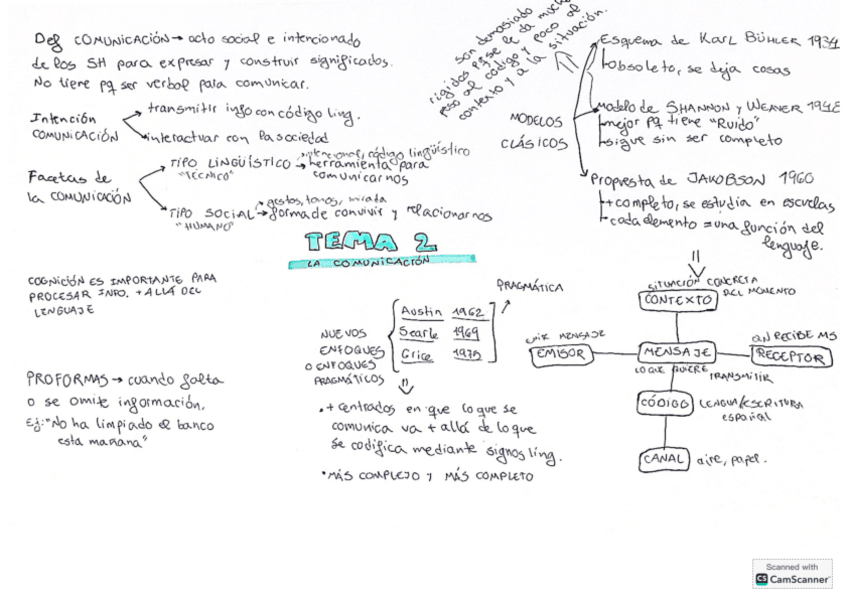 Def COMUNICACIÓN → acto social e intencionado
de los SH para expresar y construir significados.
No tiene pq ser verbal para comunicar.
Intención
COMUNICACIÓN
transmitir info con código ling.
interactuar con la sociedad
Facetas de
la COMUNICACIÓN
TIPO LINGÜÍSTICO → herramienta para
"TÉCNICO"
intencional, código lingüístico
comunicarnos
gestos, tonos, mirada
TIPO SOCIAL → forma de convivir y relacionarnos
"HUMANO"
son demasiado
rígidos pq se le da mucho
peso al código y poco al
contexto y a la situación.
MODELOS
CLÁSICOS
Esquema de KARL BÜHLER 1934
obsoleto, se deja cosas
modelo de SHANNON y WEAVER 1948
mejor pq tiene "Ruido"
sigue sin ser completo
Propuesta de JAKOBSON 1960
+ completo, se estudia en escuelas
cada elemento = una función del
lenguaje.
TEMA 2
LA COMUNICACIÓN
COGNICIÓN ES IMPORTANTE PARA
PROCESAR INFO. + ALLÁ DEL
LENGUAJE
PROFORMAS → cuando falta
o se omite información.
Ej: "No ha limpiado el banco
esta mañana"
NUEVOS
ENFOQUES
O ENFOQUES
PRAGMÁTICOS
Austin 1962
Searle 1969
Grice 1975
PRAGMÁTICA
• + centrados en que lo que se
comunica va + allá de lo que
se codifica mediante signos ling.
• MÁS COMPLEJO Y MÁS COMPLETO
SITUACIÓN CONCRETA
DEL MOMENTO
CONTEXTO
MENSAJE
EMISOR
MENSAJE
LO QUE QUIERE
TRANSMITIR
QN RECIBE MS
RECEPTOR
CÓDIGO
LENGUA/ESCRITURA
español
CANAL
aire, papel.
Scanned with
CS CamScanner